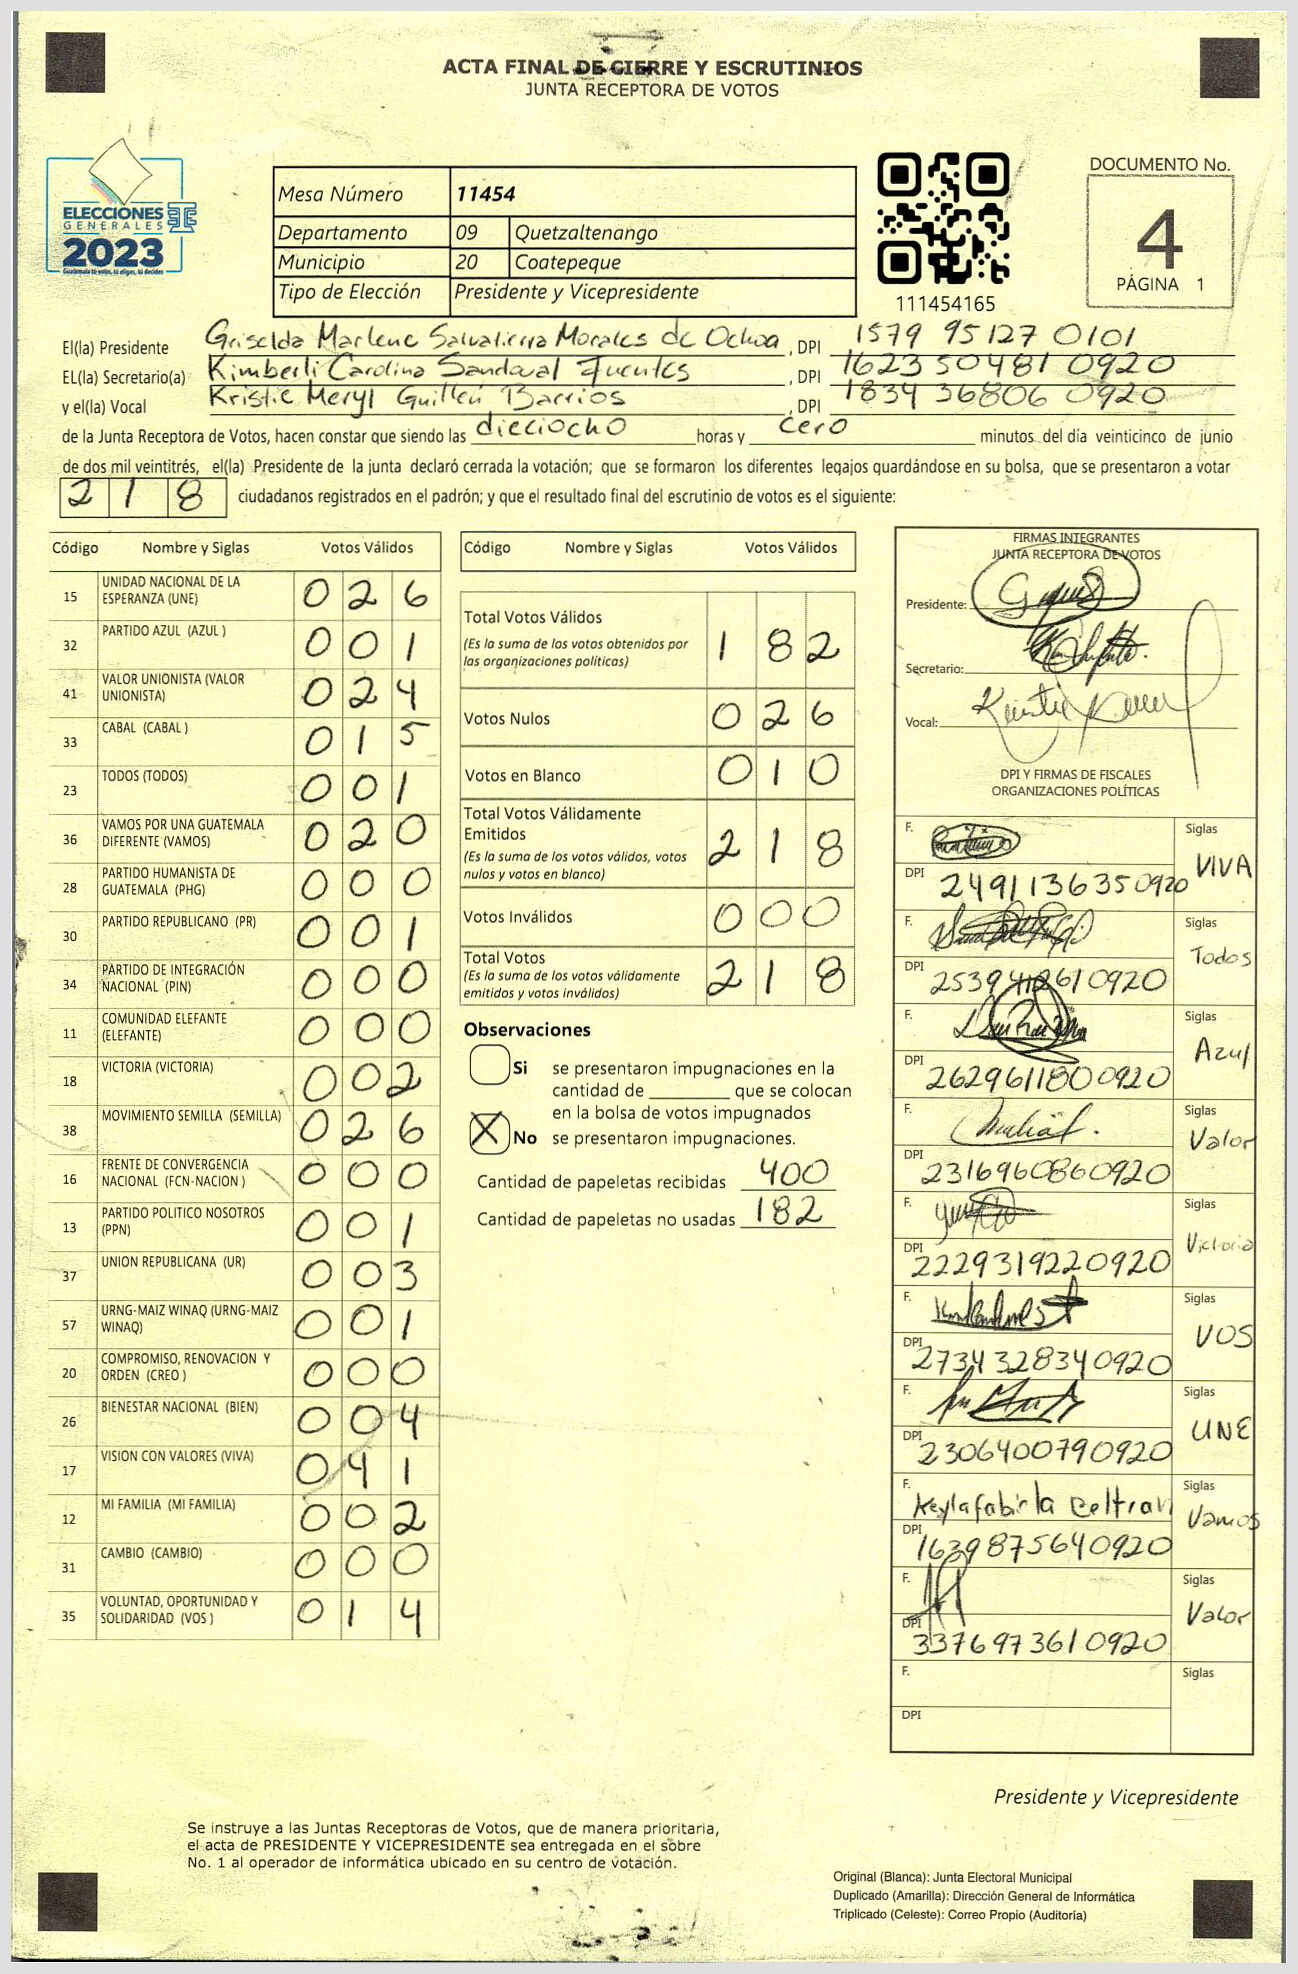 ACTA FINAL DE CIERRE Y ESCRUTINIOS
JUNTA RECEPTORA DE VOTOS
ELECCIONES
GENERALES
2023
Guatemala tú votas, tú eliges, tú decides
Mesa Número 11454
Departamento 09 Quetzaltenango
Municipio 20 Coatepeque
Tipo de Elección Presidente y Vicepresidente
111454165
DOCUMENTO No.
4
PÁGINA 1
El(la) Presidente Griselda Marlene Salvatierra Morales de Ochoa, DPI 1579 95127 0101
EL(la) Secretario(a) Kimberli Carolina Sandoval Fuentes, DPI 1623 50481 0920
y el(la) Vocal Kristie Meryl Guillén Barrios, DPI 1834 36806 0920
de la Junta Receptora de Votos, hacen constar que siendo las dieciocho horas y cero minutos del día veinticinco de junio
de dos mil veintitrés, el(la) Presidente de la junta declaró cerrada la votación; que se formaron los diferentes legajos guardándose en su bolsa, que se presentaron a votar
218 ciudadanos registrados en el padrón; y que el resultado final del escrutinio de votos es el siguiente:
Código Nombre y Siglas Votos Válidos
15 UNIDAD NACIONAL DE LA ESPERANZA (UNE) 026
32 PARTIDO AZUL (AZUL ) 001
41 VALOR UNIONISTA (VALOR UNIONISTA) 024
33 CABAL (CABAL ) 015
23 TODOS (TODOS) 001
36 VAMOS POR UNA GUATEMALA DIFERENTE (VAMOS) 020
28 PARTIDO HUMANISTA DE GUATEMALA (PHG) 000
30 PARTIDO REPUBLICANO (PR) 001
34 PARTIDO DE INTEGRACIÓN NACIONAL (PIN) 000
11 COMUNIDAD ELEFANTE (ELEFANTE) 000
18 VICTORIA (VICTORIA) 002
38 MOVIMIENTO SEMILLA (SEMILLA) 026
16 FRENTE DE CONVERGENCIA NACIONAL (FCN-NACION ) 000
13 PARTIDO POLITICO NOSOTROS (PPN) 001
37 UNION REPUBLICANA (UR) 003
57 URNG-MAIZ WINAQ (URNG-MAIZ WINAQ) 001
20 COMPROMISO, RENOVACION Y ORDEN (CREO ) 000
26 BIENESTAR NACIONAL (BIEN) 004
17 VISION CON VALORES (VIVA) 041
12 MI FAMILIA (MI FAMILIA) 002
31 CAMBIO (CAMBIO) 000
35 VOLUNTAD, OPORTUNIDAD Y SOLIDARIDAD (VOS ) 014
Código Nombre y Siglas Votos Válidos
Total Votos Válidos 182
(Es la suma de los votos obtenidos por las organizaciones políticas)
Votos Nulos 026
Votos en Blanco 010
Total Votos Válidamente Emitidos 218
(Es la suma de los votos válidos, votos nulos y votos en blanco)
Votos Inválidos 000
Total Votos 218
(Es la suma de los votos válidamente emitidos y votos inválidos)
Observaciones
Si se presentaron impugnaciones en la
cantidad de ________ que se colocan
en la bolsa de votos impugnados
X No se presentaron impugnaciones.
Cantidad de papeletas recibidas 400
Cantidad de papeletas no usadas 182
FIRMAS INTEGRANTES
JUNTA RECEPTORA DE VOTOS
Presidente:
Secretario:
Vocal:
DPI Y FIRMAS DE FISCALES
ORGANIZACIONES POLÍTICAS
F. Siglas VIVA
DPI 2491136350920
F. Siglas Todos
DPI 2539412610920
F. Siglas Azul
DPI 2629611800920
F. Siglas Valor
DPI 2316960860920
F. Siglas Victoria
DPI 2229319220920
F. Siglas VOS
DPI 2734328340920
F. Siglas UNE
DPI 2306400790920
F. Keyla fabiola Beltran Siglas Vamos
DPI 1639875640920
F. Siglas Valor
DPI 3376973610920
F. Siglas
DPI
Presidente y Vicepresidente
Se instruye a las Juntas Receptoras de Votos, que de manera prioritaria,
el acta de PRESIDENTE Y VICEPRESIDENTE sea entregada en el sobre
No. 1 al operador de informática ubicado en su centro de votación.
Original (Blanca): Junta Electoral Municipal
Duplicado (Amarilla): Dirección General de Informática
Triplicado (Celeste): Correo Propio (Auditoría)